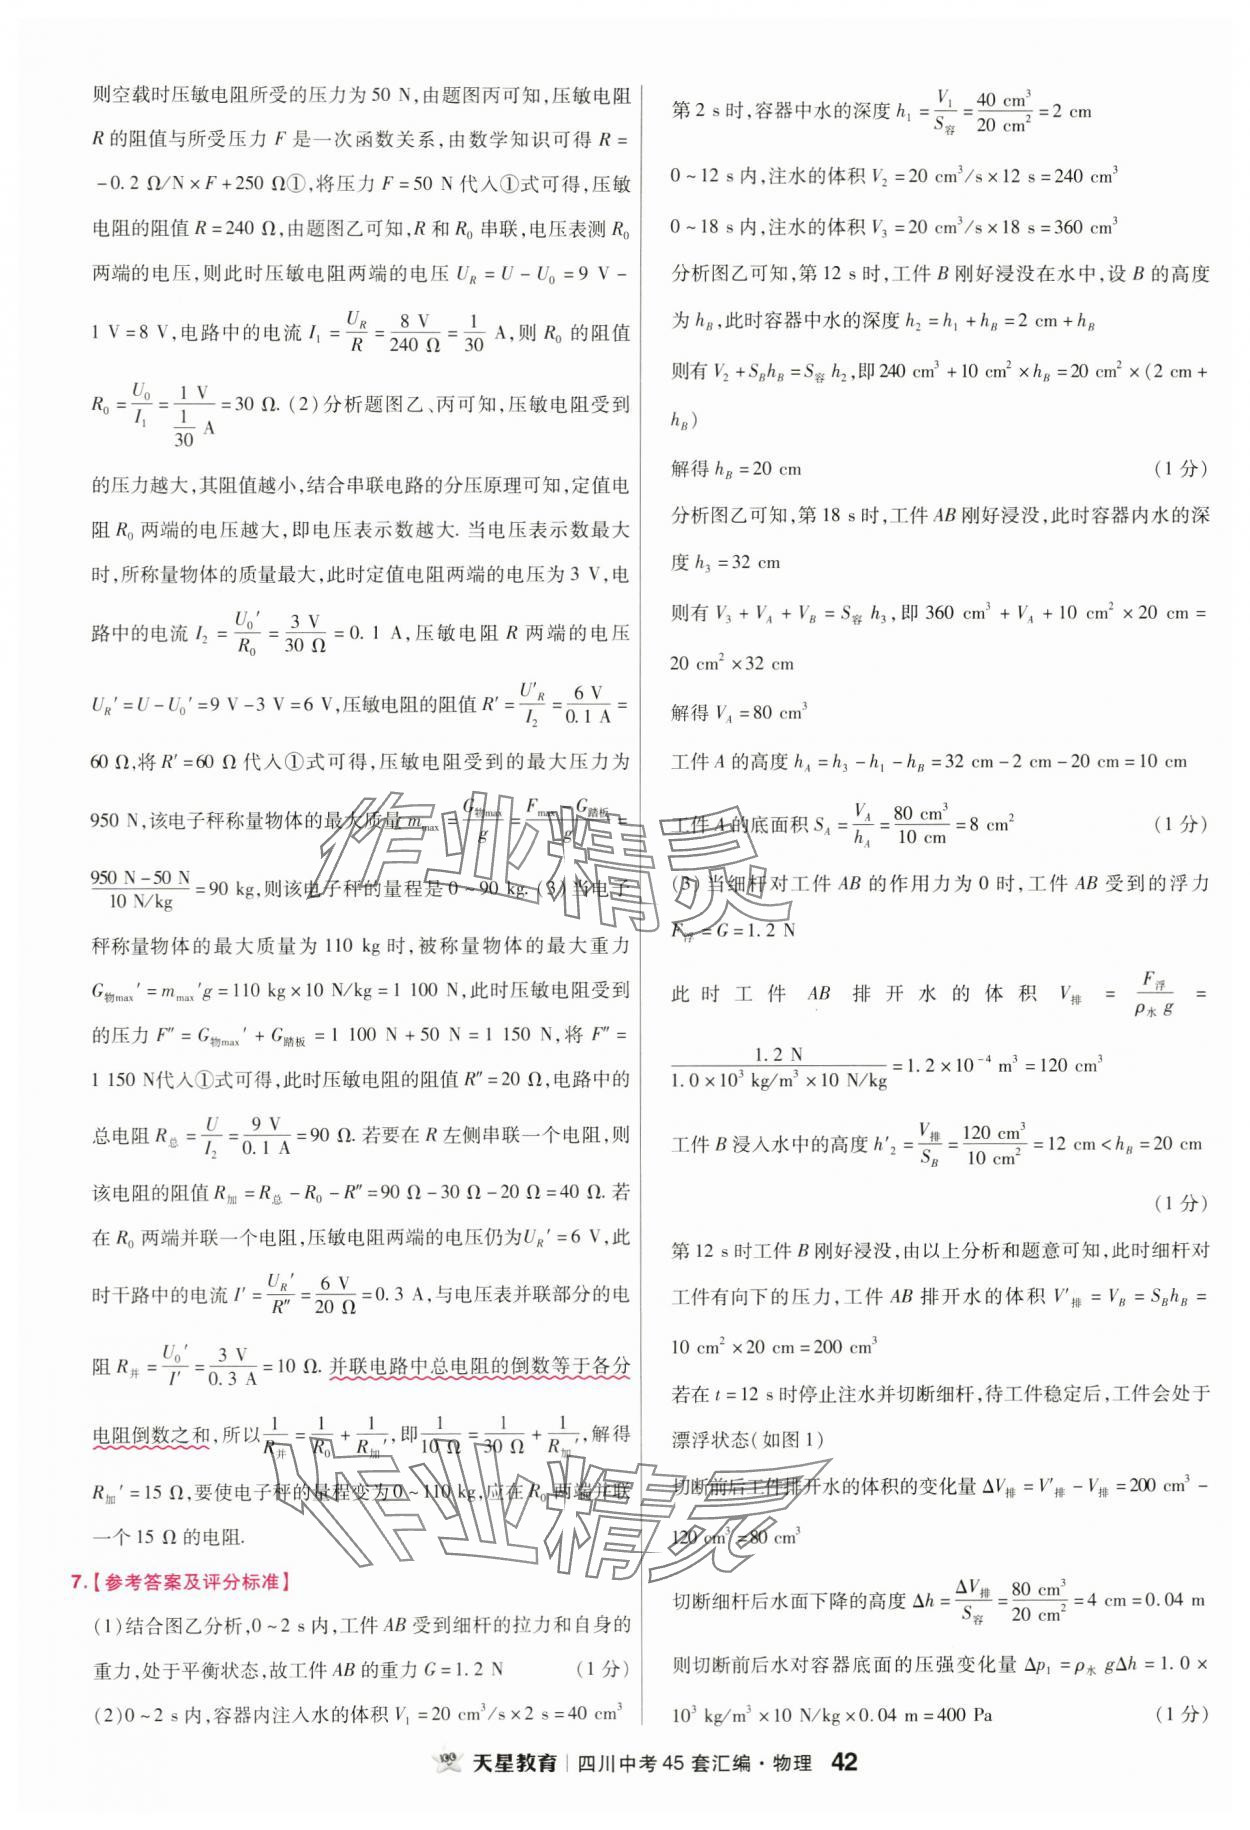 则空载时压敏电阻所受的压力为 50 N,由题图丙可知,压敏电阻
R 的阻值与所受压力 F 是一次函数关系,由数学知识可得 R =
-0.2 Ω/N×F+250 Ω①,将压力 F=50 N 代入①式可得,压敏
电阻的阻值 R=240 Ω,由题图乙可知,R 和 R₀ 串联,电压表测 R₀
两端的电压,则此时压敏电阻两端的电压 U_R = U - U₀ = 9 V -
1 V=8 V,电路中的电流 I₁ = U_R/R = 8 V/240 Ω = 1/30 A,则 R₀ 的阻值
R₀ = U₀/I₁ = 1 V/(1/30 A) = 30 Ω. (2)分析题图乙、丙可知,压敏电阻受到
的压力越大,其阻值越小,结合串联电路的分压原理可知,定值电
阻 R₀ 两端的电压越大,即电压表示数越大. 当电压表示数最大
时,所称量物体的质量最大,此时定值电阻两端的电压为 3 V,电
路中的电流 I₂ = U₀′/R₀ = 3 V/30 Ω = 0.1 A,压敏电阻 R 两端的电压
U_R′=U-U₀′=9 V-3 V=6 V,压敏电阻的阻值 R′= U′_R/I₂ = 6 V/0.1 A =
60 Ω,将 R′=60 Ω 代入①式可得,压敏电阻受到的最大压力为
950 N,该电子秤称量物体的最大质量 m_max = G_物max/g = (F_max-G_踏板)/g =
(950 N-50 N)/(10 N/kg) = 90 kg,则该电子秤的量程是 0~90 kg. (3)当电子
秤称量物体的最大质量为 110 kg 时,被称量物体的最大重力
G_物max′ = m_max′g = 110 kg×10 N/kg = 1 100 N,此时压敏电阻受到
的压力 F″ = G_物max′ + G_踏板 = 1 100 N + 50 N = 1 150 N,将 F″ =
1 150 N代入①式可得,此时压敏电阻的阻值 R″=20 Ω,电路中的
总电阻 R_总 = U/I₂ = 9 V/0.1 A = 90 Ω. 若要在 R 左侧串联一个电阻,则
该电阻的阻值 R_加 = R_总 - R₀ - R″ = 90 Ω - 30 Ω - 20 Ω = 40 Ω. 若
在 R₀ 两端并联一个电阻,压敏电阻两端的电压仍为U_R′=6 V,此
时干路中的电流 I′ = U_R′/R″ = 6 V/20 Ω = 0.3 A,与电压表并联部分的电
阻 R_并 = U₀′/I′ = 3 V/0.3 A = 10 Ω. 并联电路中总电阻的倒数等于各分
电阻倒数之和,所以 1/R_并 = 1/R₀ + 1/R_加′,即 1/10 Ω = 1/30 Ω + 1/R_加′,解得
R_加′=15 Ω,要使电子秤的量程变为 0~110 kg,应在 R₀ 两端并联
一个 15 Ω 的电阻.
7.【参考答案及评分标准】
(1)结合图乙分析,0~2 s 内,工件 AB 受到细杆的拉力和自身的
重力,处于平衡状态,故工件 AB 的重力 G=1.2 N (1 分)
(2)0~2 s 内,容器内注入水的体积 V₁ = 20 cm³/s×2 s=40 cm³
第 2 s 时,容器中水的深度 h₁ = V₁/S_容 = 40 cm³/20 cm² = 2 cm
0~12 s 内,注水的体积 V₂ = 20 cm³/s×12 s=240 cm³
0~18 s 内,注水的体积 V₃ = 20 cm³/s×18 s=360 cm³
分析图乙可知,第 12 s 时,工件 B 刚好浸没在水中,设 B 的高度
为 h_B,此时容器中水的深度 h₂ = h₁ + h_B = 2 cm + h_B
则有 V₂ + S_B h_B = S_容 h₂,即 240 cm³ + 10 cm² × h_B = 20 cm² × (2 cm +
h_B)
解得 h_B = 20 cm (1 分)
分析图乙可知,第 18 s 时,工件 AB 刚好浸没,此时容器内水的深
度 h₃ = 32 cm
则有 V₃ + V_A + V_B = S_容 h₃,即 360 cm³ + V_A + 10 cm² × 20 cm =
20 cm² × 32 cm
解得 V_A = 80 cm³
工件 A 的高度 h_A = h₃ - h₁ - h_B = 32 cm - 2 cm - 20 cm = 10 cm
工件 A 的底面积 S_A = V_A/h_A = 80 cm³/10 cm = 8 cm² (1 分)
(3)当细杆对工件 AB 的作用力为 0 时,工件 AB 受到的浮力
F_浮 = G = 1.2 N
此时工件 AB 排开水的体积 V_排 = F_浮/(ρ_水 g) =
1.2 N/(1.0×10³ kg/m³×10 N/kg) = 1.2×10⁻⁴ m³ = 120 cm³
工件 B 浸入水中的高度 h′₂ = V_排/S_B = 120 cm³/10 cm² = 12 cm < h_B = 20 cm
(1 分)
第 12 s 时工件 B 刚好浸没,由以上分析和题意可知,此时细杆对
工件有向下的压力,工件 AB 排开水的体积 V′_排 = V_B = S_B h_B =
10 cm² × 20 cm = 200 cm³
若在 t = 12 s 时停止注水并切断细杆,待工件稳定后,工件会处于
漂浮状态(如图 1)
切断前后工件排开水的体积的变化量 ΔV_排 = V′_排 - V_排 = 200 cm³ -
120 cm³ = 80 cm³
切断细杆后水面下降的高度 Δh = ΔV_排/S_容 = 80 cm³/20 cm² = 4 cm = 0.04 m
则切断前后水对容器底面的压强变化量 Δp₁ = ρ_水 gΔh = 1.0 ×
10³ kg/m³ × 10 N/kg × 0.04 m = 400 Pa (1 分)
作业精灵
作业精灵
天星教育 | 四川中考 45 套汇编·物理 42